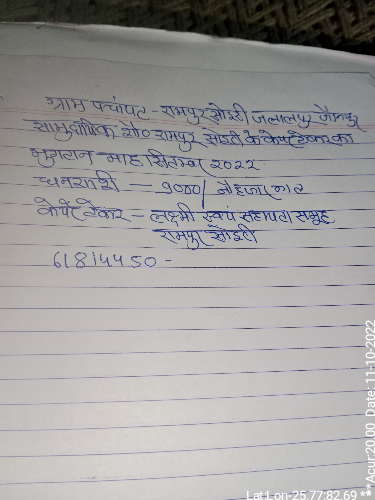 ग्राम पंचायट - रामपुर सोइरी जलालपुर जौनपुर
सामुदायिक शौ० रामपुर सोइरी के केयर टेकर का
भुगतान माह सितम्बर 2022
धनराशी - 9000/ नौ हजार मात्र
केयर टेकर - लक्ष्मी स्वयं सहायता समूह
रामपुर सोइरी
61814450 -
Lat Lon-25.77:82.69 ***Acur:20.00 Date: 11-10-2022